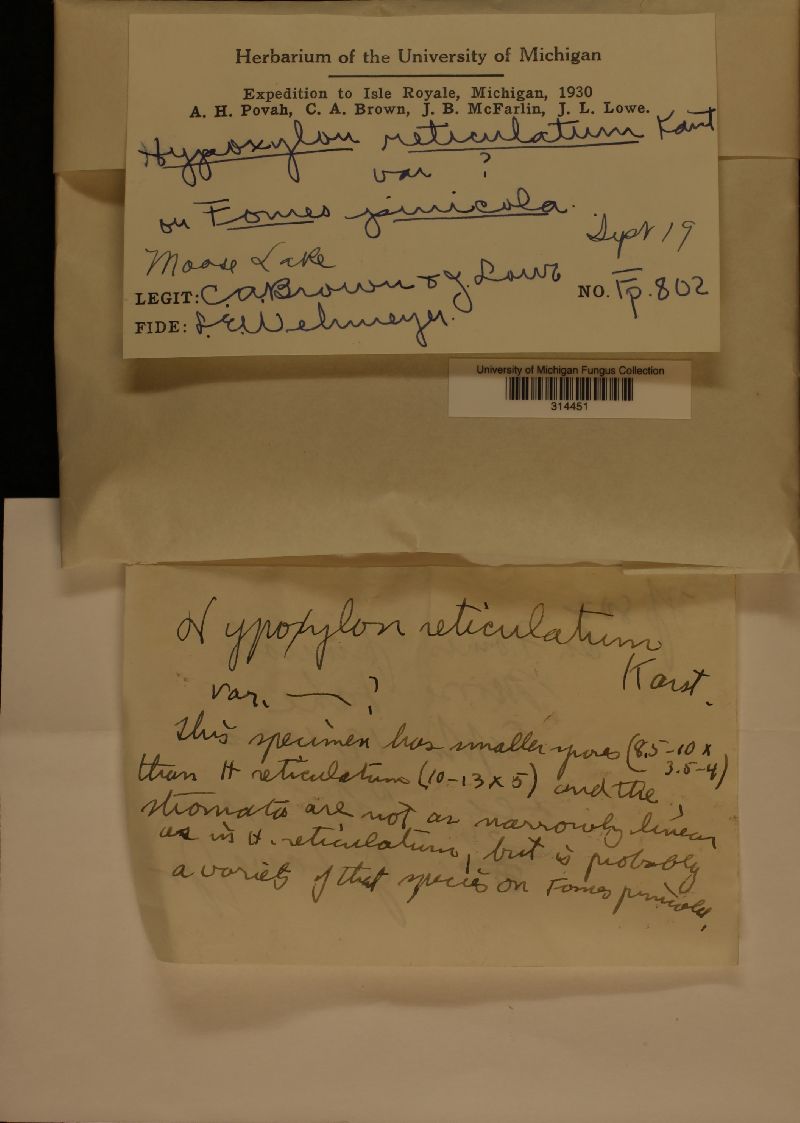 Herbarium of the University of Michigan
Expedition to Isle Royale, Michigan, 1930
A. H. Povah, C. A. Brown, J. B. McFarlin, J. L. Lowe.
Hypoxylon reticulatum Karst
var ?
on Fomes pinicola.
Sept 19
Moose Lake
LEGIT: C.A. Brown & J. Lowe
NO. Fp. 802
FIDE: L.E. Wehmeyer.
University of Michigan Fungus Collection
314451
Hypoxylon reticulatum
Karst.
var. — ?
This specimen has smaller spores (8.5-10 x
3.5-4)
than H reticulatum (10-13 x 5) and the
stromata are not as narrowly linear
as in H. reticulatum, but is probably
a variety of that species on Fomes pinicola.